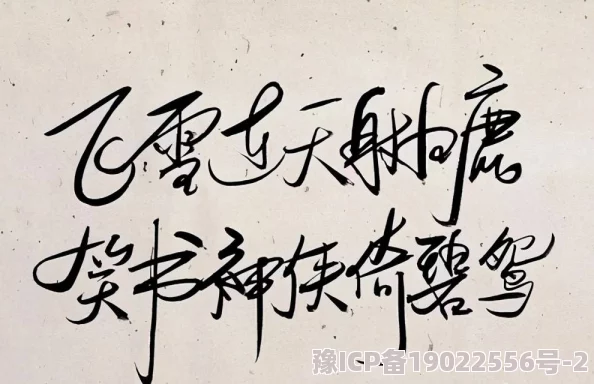 飞雪连天射白鹿
笑书神侠倚碧鸳
豫ICP备19022556号-2